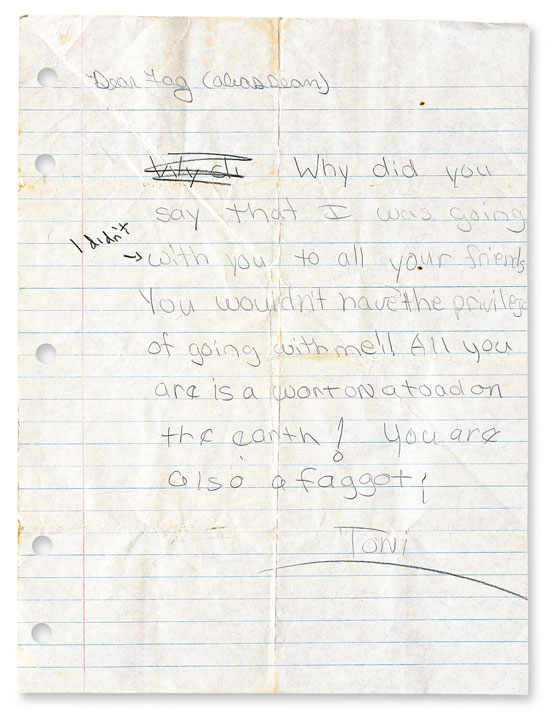 Dear Fag (alias Dean)
Why di Why did you
say that I was going
I didn't → with you to all your friends
You wouldn't have the privilege
of going with me!! All you
are is a wort on a toad on
the earth! You are
also a faggot!
Toni